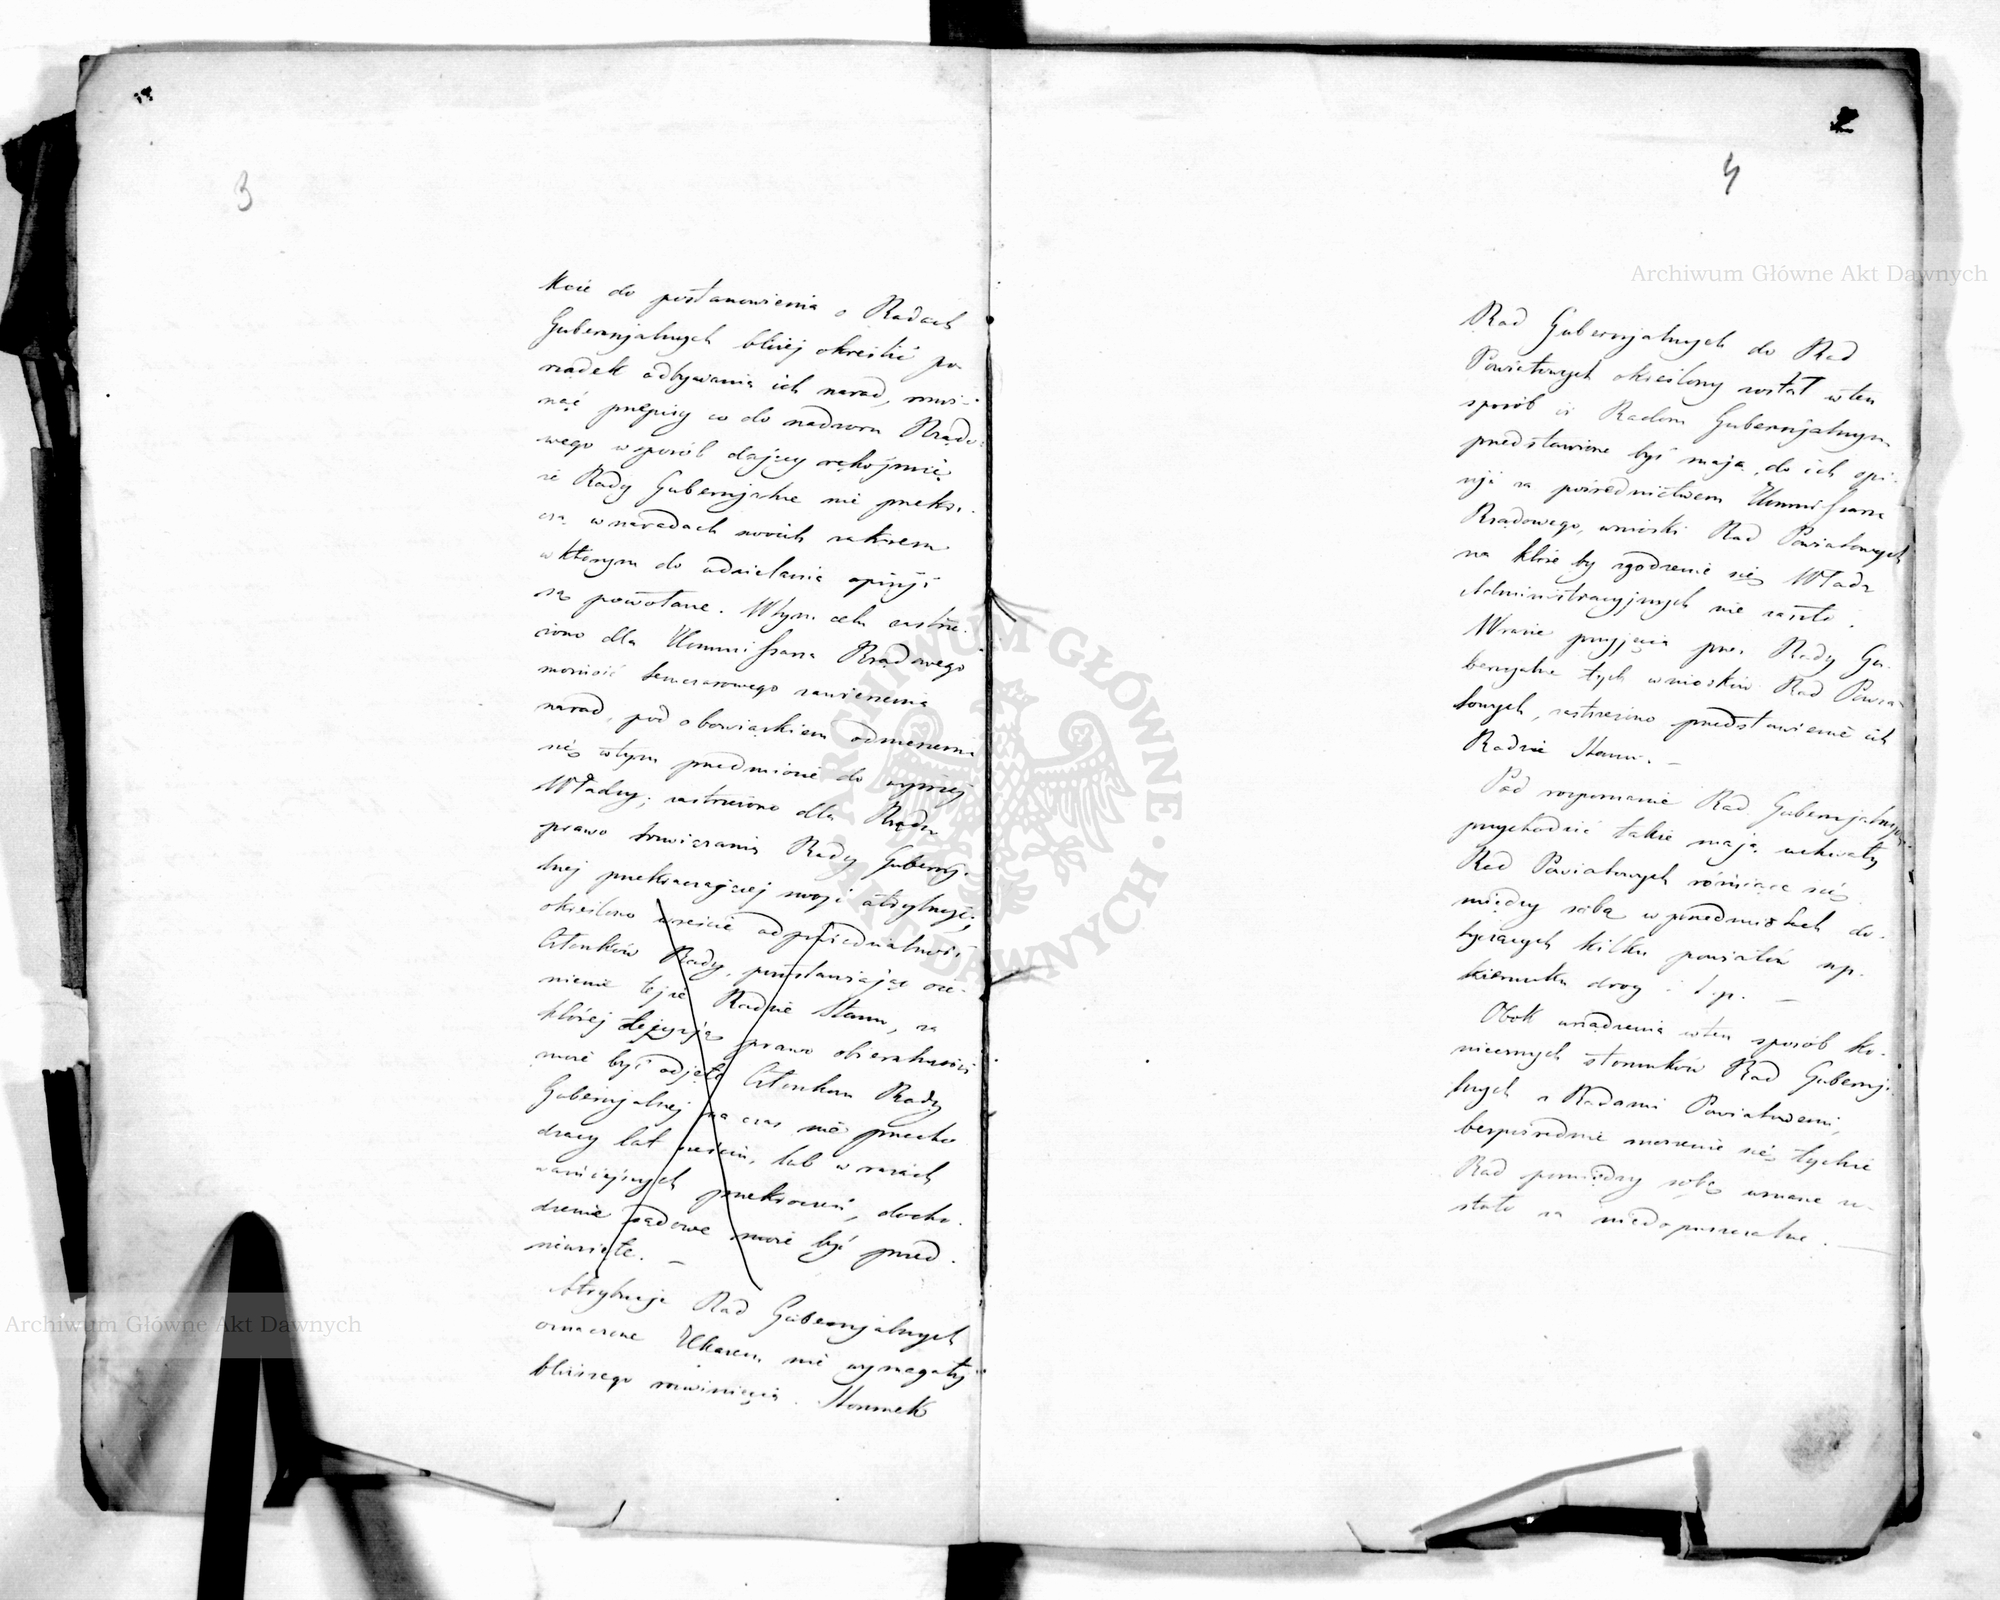 3
kcie do postanowienia o Radach
Gubernjalnych bliżej określić po-
rządek odbywania ich narad, omi-
nąć przepisy co do nadzoru Rządo-
wego w sposób dający rękojmię
że Rady Gubernjalne nie przekro-
czą w naradach swoich zakresu
w którym do udzielania opinji
są powołane. W tym celu zastrze-
żono dla Kommissarza Rządowego
możność tymczasowego zawieszenia
narad, pod obowiązkiem odniesienia
się w tym przedmiocie do wyższej
Władzy; zastrzeżono dla Rządu
prawo rozwiązania Rady Gubernj-
lnej przekraczającej swoje atrybucje;
określono wreście odpowiedzialność
Członków Rady, pozostawiając oce-
nienie tejże Radzie Stanu, za
której decyzją prawo obieralności
może być odjęte Członkom Rady
Gubernjalnej na czas nie przecho-
dzący lat sześciu, lub w razach
ważniejszych przekroczeń, docho-
dzenie sądowe może być przed-
niewzięte. —
Atrybucje Rad Gubernjalnych
oznaczone Ukazem nie wymagały
bliższego rozwinięcia. Stosunek
2
4
Rad Gubernjalnych do Rad
Powiatowych określony został w ten
sposób iż Radom Gubernjalnym
przedstawione być mają, do ich opi-
nji za pośrednictwem Kommissarza
Rządowego, wnioski Rad Powiatowych
na które by zgodzenie się Władz
Administracyjnych nie zaszło.
W razie przyjęcia przez Rady Gu-
bernjalne tych wniosków Rad Powia-
towych, zastrzeżono przedstawienie ich
Radzie Stanu. —
Pod rozpoznanie Rad Gubernjalnych
przychodzić także mają uchwały
Rad Powiatowych różniące się
między sobą w przedmiotach do-
tyczących kilku powiatów np.
kierunku drog i t. p. —
Obok urządzenia w ten sposób ko-
niecznych stosunków Rad Gubernj-
lnych z Radami Powiatowemi,
bezpośrednie znoszenie się tychże
Rad pomiędzy sobą uznane zo-
stało za niedopuszczalne. —
Archiwum Główne Akt Dawnych
ARCHIWUM GŁÓWNE AKT DAWNYCH
Archiwum Główne Akt Dawnych